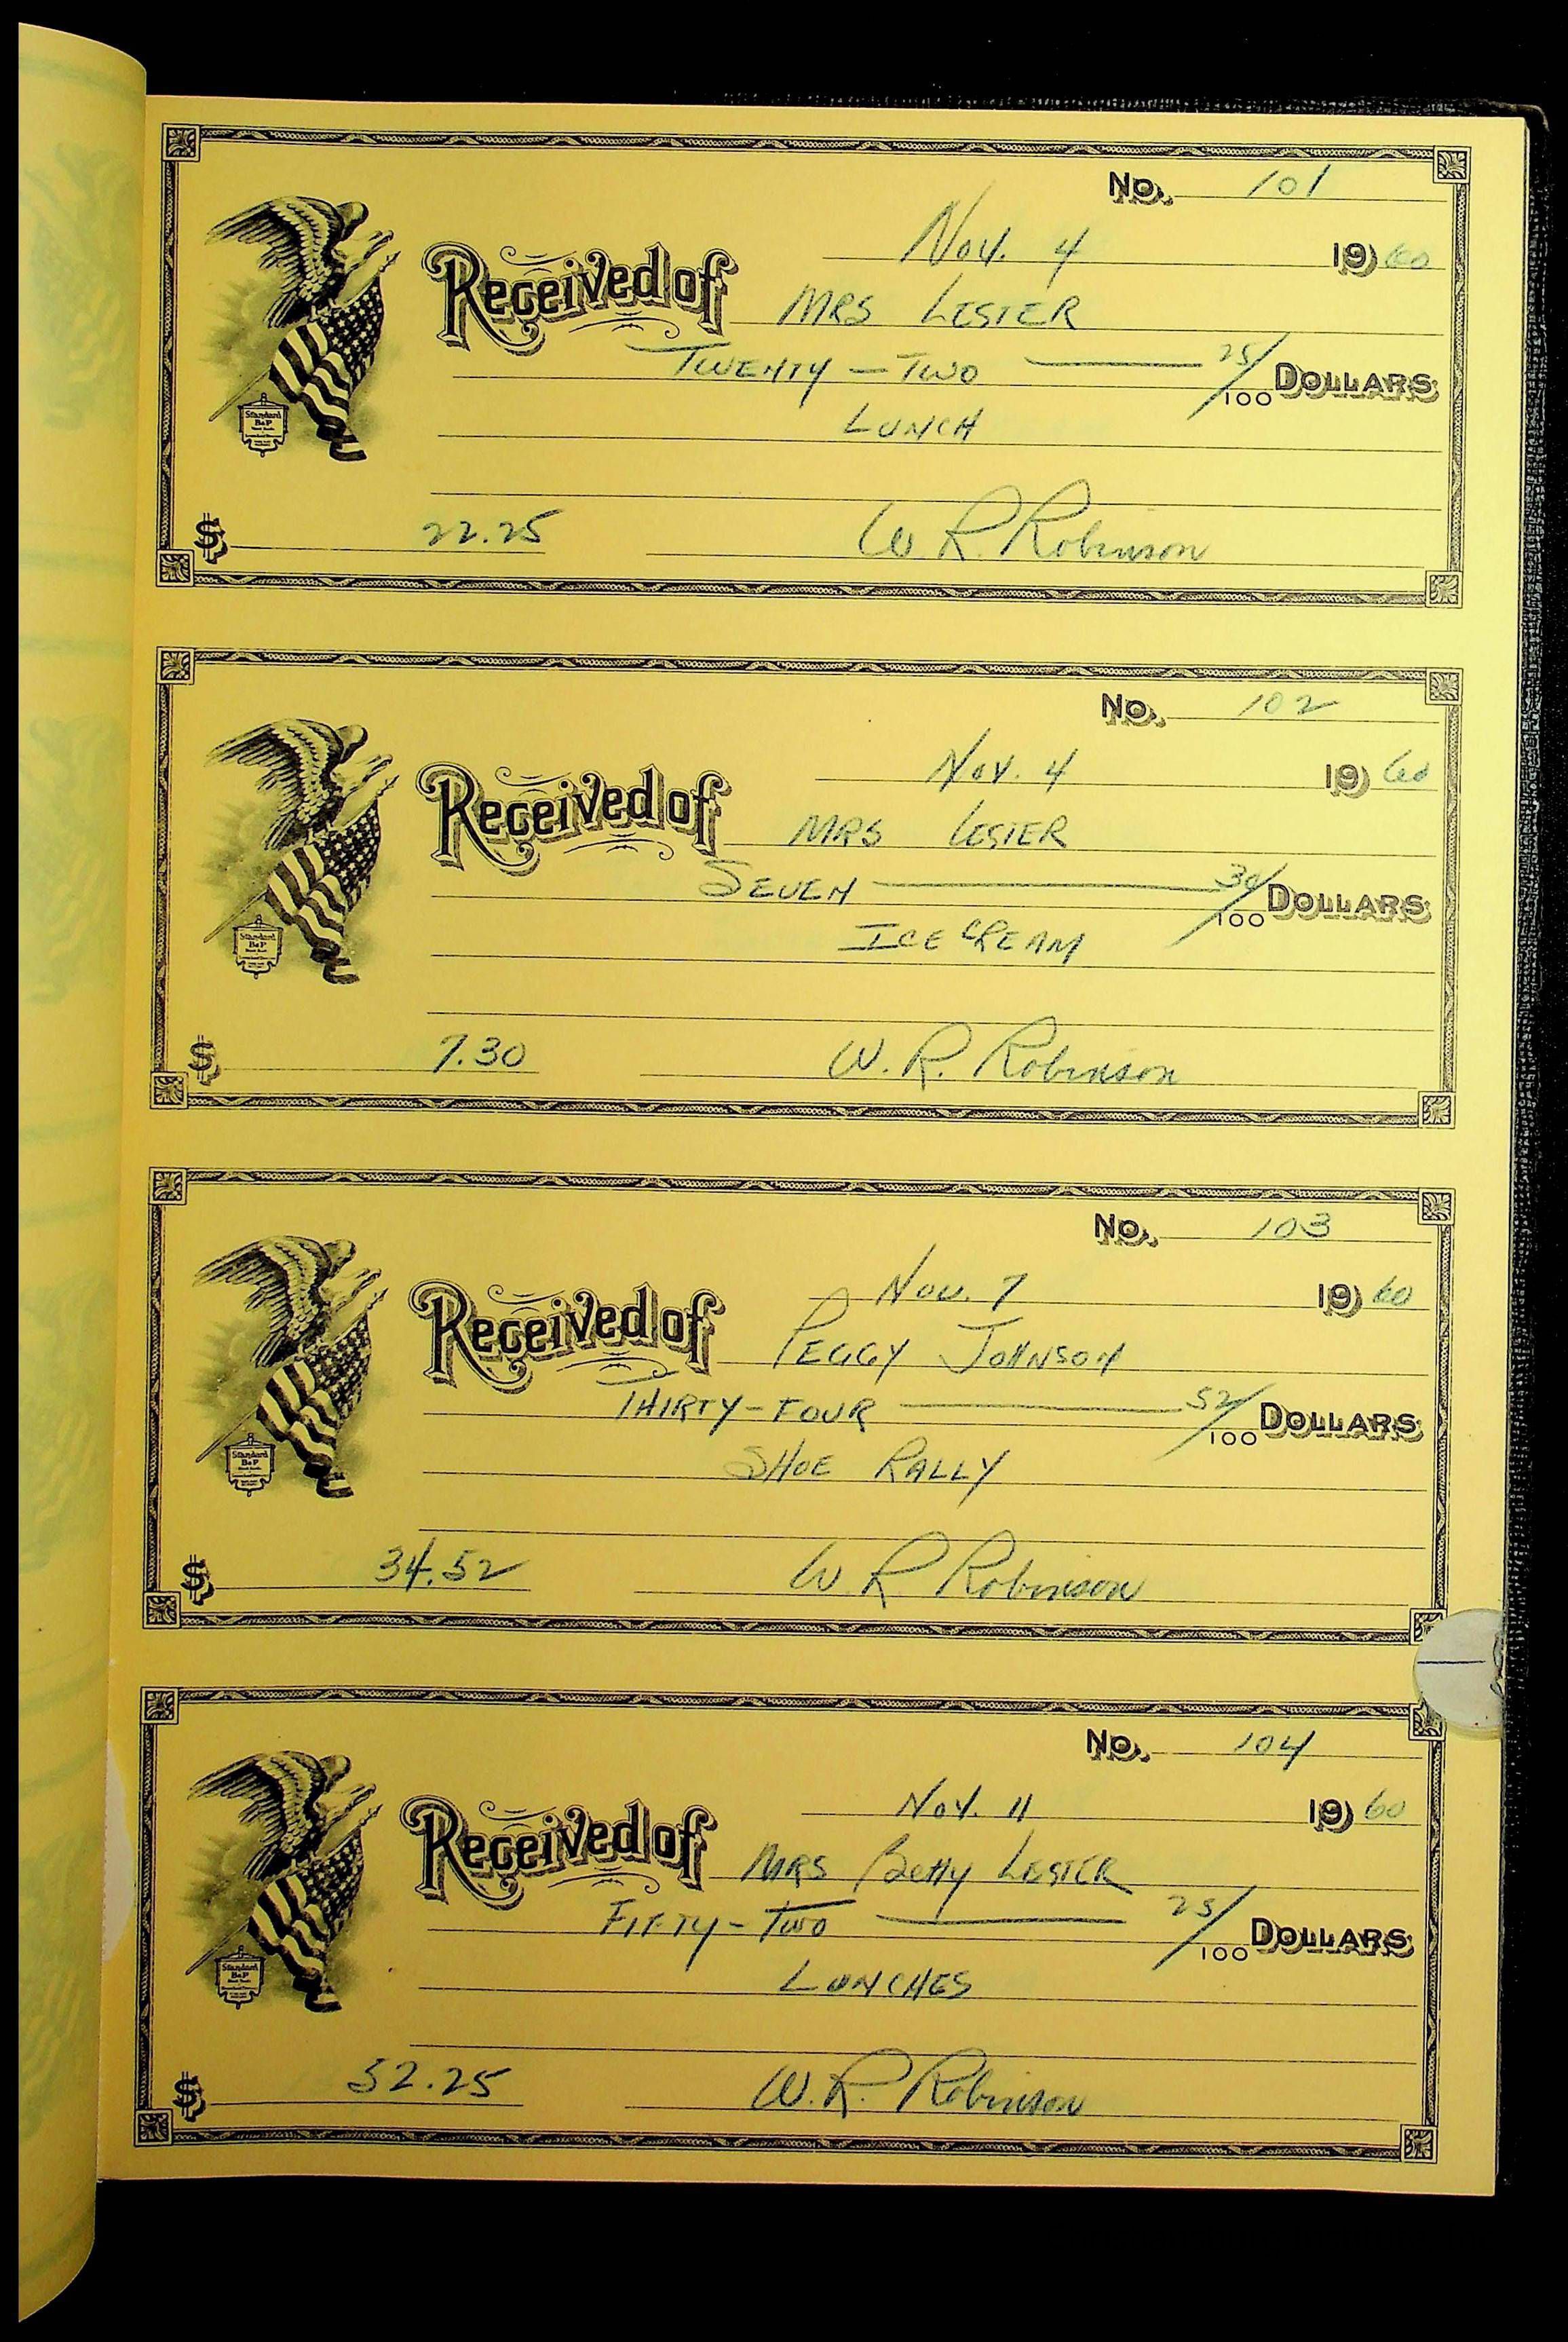 No. 101
Nov. 4 1960
Received of MRS LESTER
TWENTY-TWO 25/100 DOLLARS
LUNCH
Standard
B&P
$ 22.25 W R. Robinson
No. 102
Nov. 4 1960
Received of MRS LESTER
SEVEN 30/100 DOLLARS
ICE CREAM
Standard
B&P
$ 7.30 W. R. Robinson
No. 103
Nov. 7 1960
Received of PEGGY JOHNSON
THIRTY-FOUR 52/100 DOLLARS
SHOE RALLY
Standard
B&P
$ 34.52 W. R Robinson
No. 104
Nov. 11 1960
Received of MRS Betty LESTER
FIFTY-TWO 25/100 DOLLARS
LUNCHES
Standard
B&P
$ 52.25 W. R. Robinson